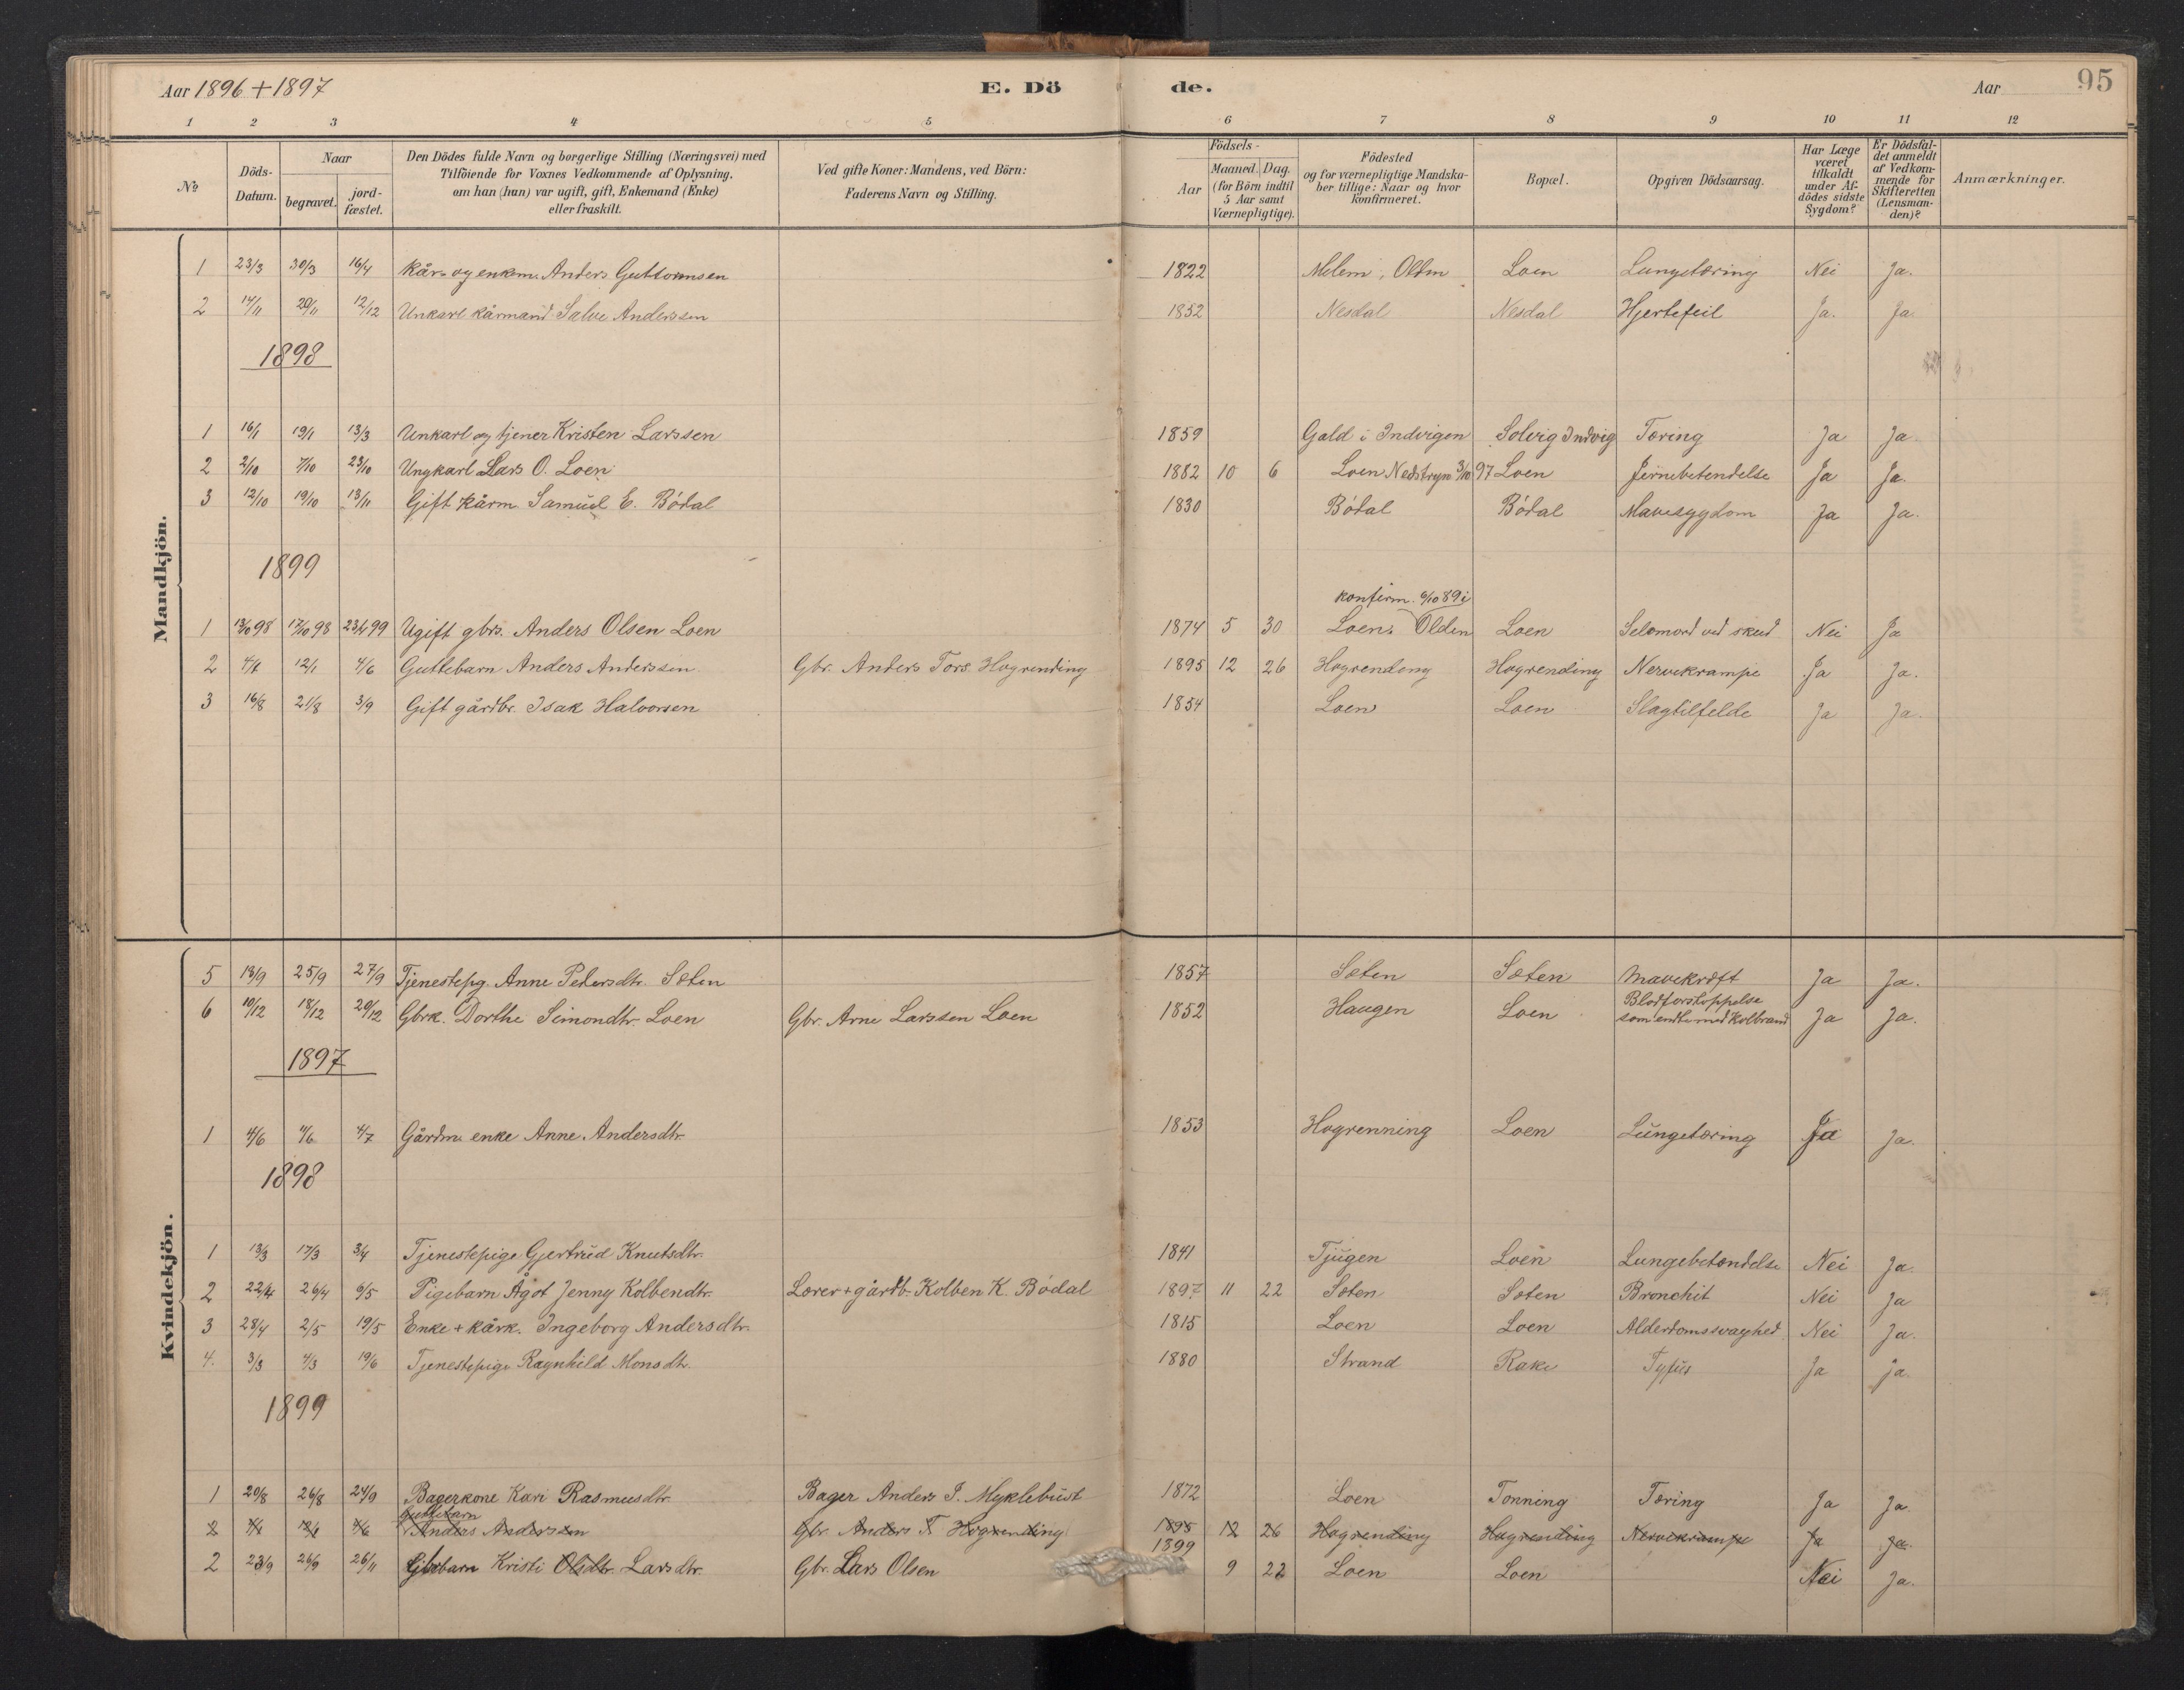 Aar 1896 + 1897 E. Dö de. Aar 95
1 2 3 4 5 6 7 8 9 10 11 12
No Döds-Datum. Naar begravet. jordfæstet. Den Dödes fulde Navn og borgerlige Stilling (Næringsvei) med Tilföiende for Voxnes Vedkommende af Oplysning, om han (hun) var ugift, gift, Enkemand (Enke) eller fraskilt. Ved gifte Koner: Mandens, ved Börn: Faderens Navn og Stilling. Födsels- Aar Maaned. Dag. (for Börn indtil 5 Aar samt Værnepligtige). Födested og for værnepligtige Mandskaber tillige: Naar og hvor konfirmeret. Bopæl. Opgiven Dödsaarsag. Har Læge været tilkaldt under Afdödes sidste Sygdom? Er Dödsfaldet anmeldt af Vedkommende for Skifteretten (Lensmanden)? Anmærkninger.
Mandkjön.
1 23/3 30/3 16/4 Kår- og enkem. Anders Guttormsen 1822 Melem, Olden Loen Lungetæring Nei Ja.
2 14/11 20/11 12/12 Unkarl kårmand Salve Anderssen 1852 Nesdal Nesdal Hjertefeil Ja. Ja.
1898
1 16/1 19/1 13/3 Unkarl og tjener Kristen Larssen 1859 Gald i Indvigen Solvig Indvig Tæring Ja Ja
2 2/10 7/10 23/10 Ungkarl Lars O. Loen 1882 10 6 Loen Nedstryn 3/10 97 Loen Jernebetendelse Ja Ja.
3 12/10 19/10 13/11 Gift kårm. Samuel E. Bödal 1830 Bödal Bödal Mavesygdom Ja Ja.
1899
konfirm. 6/10 89 i
1 13/10 98 17/10 98 23/4 99 Ugift gbrs. Anders Olsen Loen 1874 5 30 Loen. Olden Loen Selvmord ved skud Nei Ja
2 4/1 12/1 4/6 Guttebarn Anders Anderssen Gbr. Anders Tors. Hogrending 1895 12 26 Hogrendong Hogrending Nervekrampe Ja Ja.
3 16/8 21/8 3/9 Gift gårdbr. Isak Halvorsen 1854 Loen Loen Slagtilfelde Ja Ja.
Kvindekjön.
5 18/9 25/9 27/9 Tjenestepg. Anne Petersdtr. Sæten 1857 Sæten Sæten Mavekræft Ja Ja.
6 10/12 18/12 20/12 Gbrk. Dorthe Seimondtr. Loen Gbr. Arne Larssen Loen 1852 Haugen Loen Blodforstoppelse som endte med Kolbrand Ja Ja.
1897
1 4/6 11/6 4/7 Gårdm. enke Anne Andersdtr. 1853 Hogrenning Loen Lungetæring Ja Ja.
1898
1 13/3 17/3 3/4 Tjenestepige Gjertrud Knutsdtr. 1841 Tjugen Loen Lungebetændelse Nei Ja.
2 22/4 26/4 6/5 Pigebarn Ågot Jenny Kolbendtr. Lærer + gårdb. Kolben K. Bödal 1897 11 22 Sæten Sæten Bronchit Nei Ja
3 28/4 2/5 19/5 Enke + kårk. Ingeborg Andersdtr. 1815 Loen Loen Alderdomssvaghed Nei Ja.
4. 3/3 4/3 19/6 Tjenestepige Ragnhild Monsdtr. 1880 Strand Rake Tyfus Ja ja.
1899
1 20/8 26/8 24/9 Bagerkone Kari Rasmusdtr. Bager Anders J. Myklebust 1872 Loen Tonning Tæring Ja Ja
Guttebarn
2 4/1 12/1 4/6 Anders Anderssen Gbr. Anders T. Hogrending 1895 12 26 Hogrending Hogrending Nervekrampe Ja Ja.
1899
2 23/9 26/9 26/11 Gbrbarn Kristi Olsdtr. Larsdtr. Gbr. Lars Olsen 9 22 Loen Loen Nei Ja.